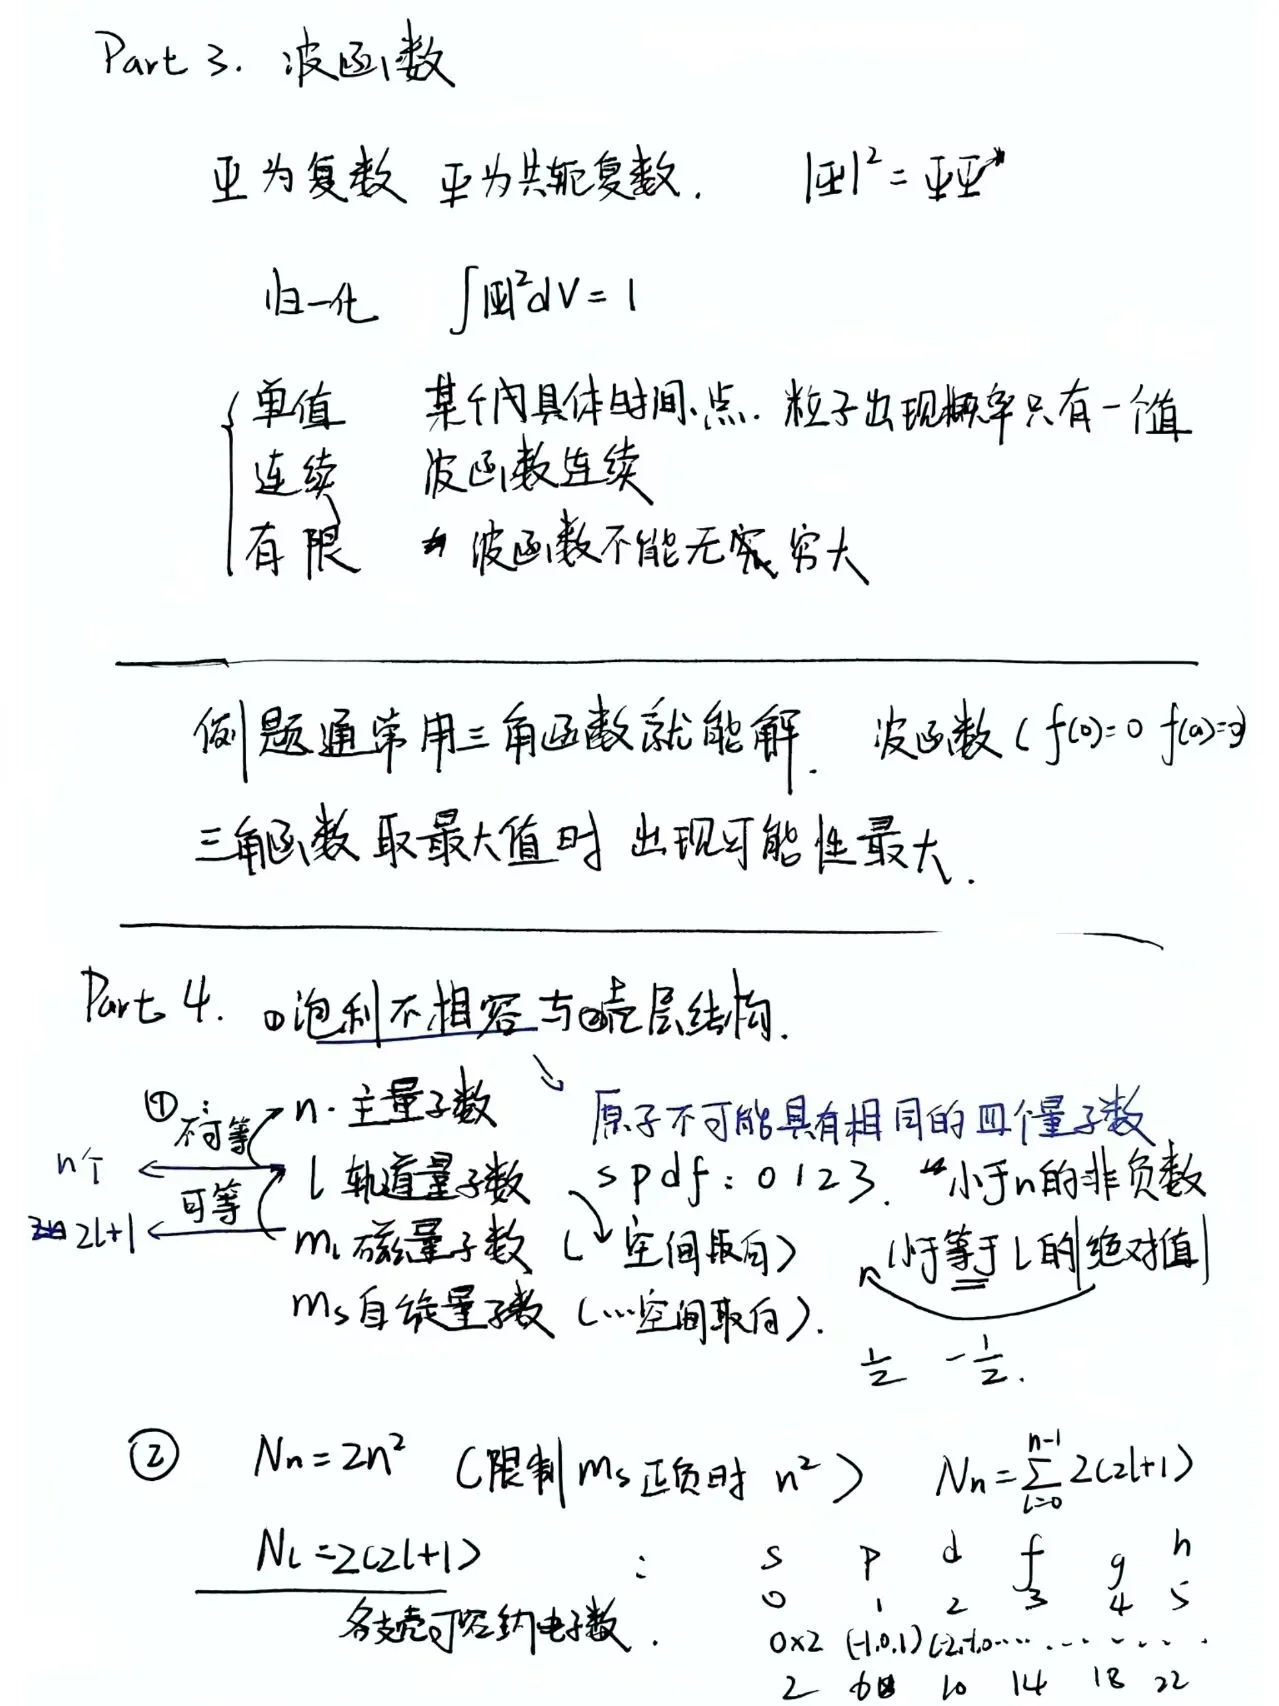 Part 3. 波函数
Ψ为复数 Ψ为共轭复数. |Ψ|² = ΨΨ*
归一化 ∫|Ψ|²dV = 1
单值 某个内具体时间点. 粒子出现概率只有一个值
连续 波函数连续
有限 波函数不能无穷大
例题通常用三角函数就能解. 波函数 ( f(0)=0 f(a)=0)
三角函数取最大值时 出现可能性最大.
Part 4. ①泡利不相容与②壳层结构.
① 不可等 n. 主量子数 原子不可能具有相同的四个量子数
n个 l 轨道量子数 s p d f : 0 1 2 3. 小于n的非负数
2l+1 可等 m_l 磁量子数 ( 空间取向) (小于等于 l 的|绝对值|
m_s 自旋量子数 (…空间取向).
½ -½.
② N_n = 2n² (限制 m_s 正负时 n²) N_n = Σ_{l=0}^{n-1} 2(2l+1)
N_l = 2(2l+1) : s p d f g h
0 1 2 3 4 5
各支壳可容纳电子数. 0×2 (-1,0,1) (-2,-1,0……
2 6 10 14 18 22